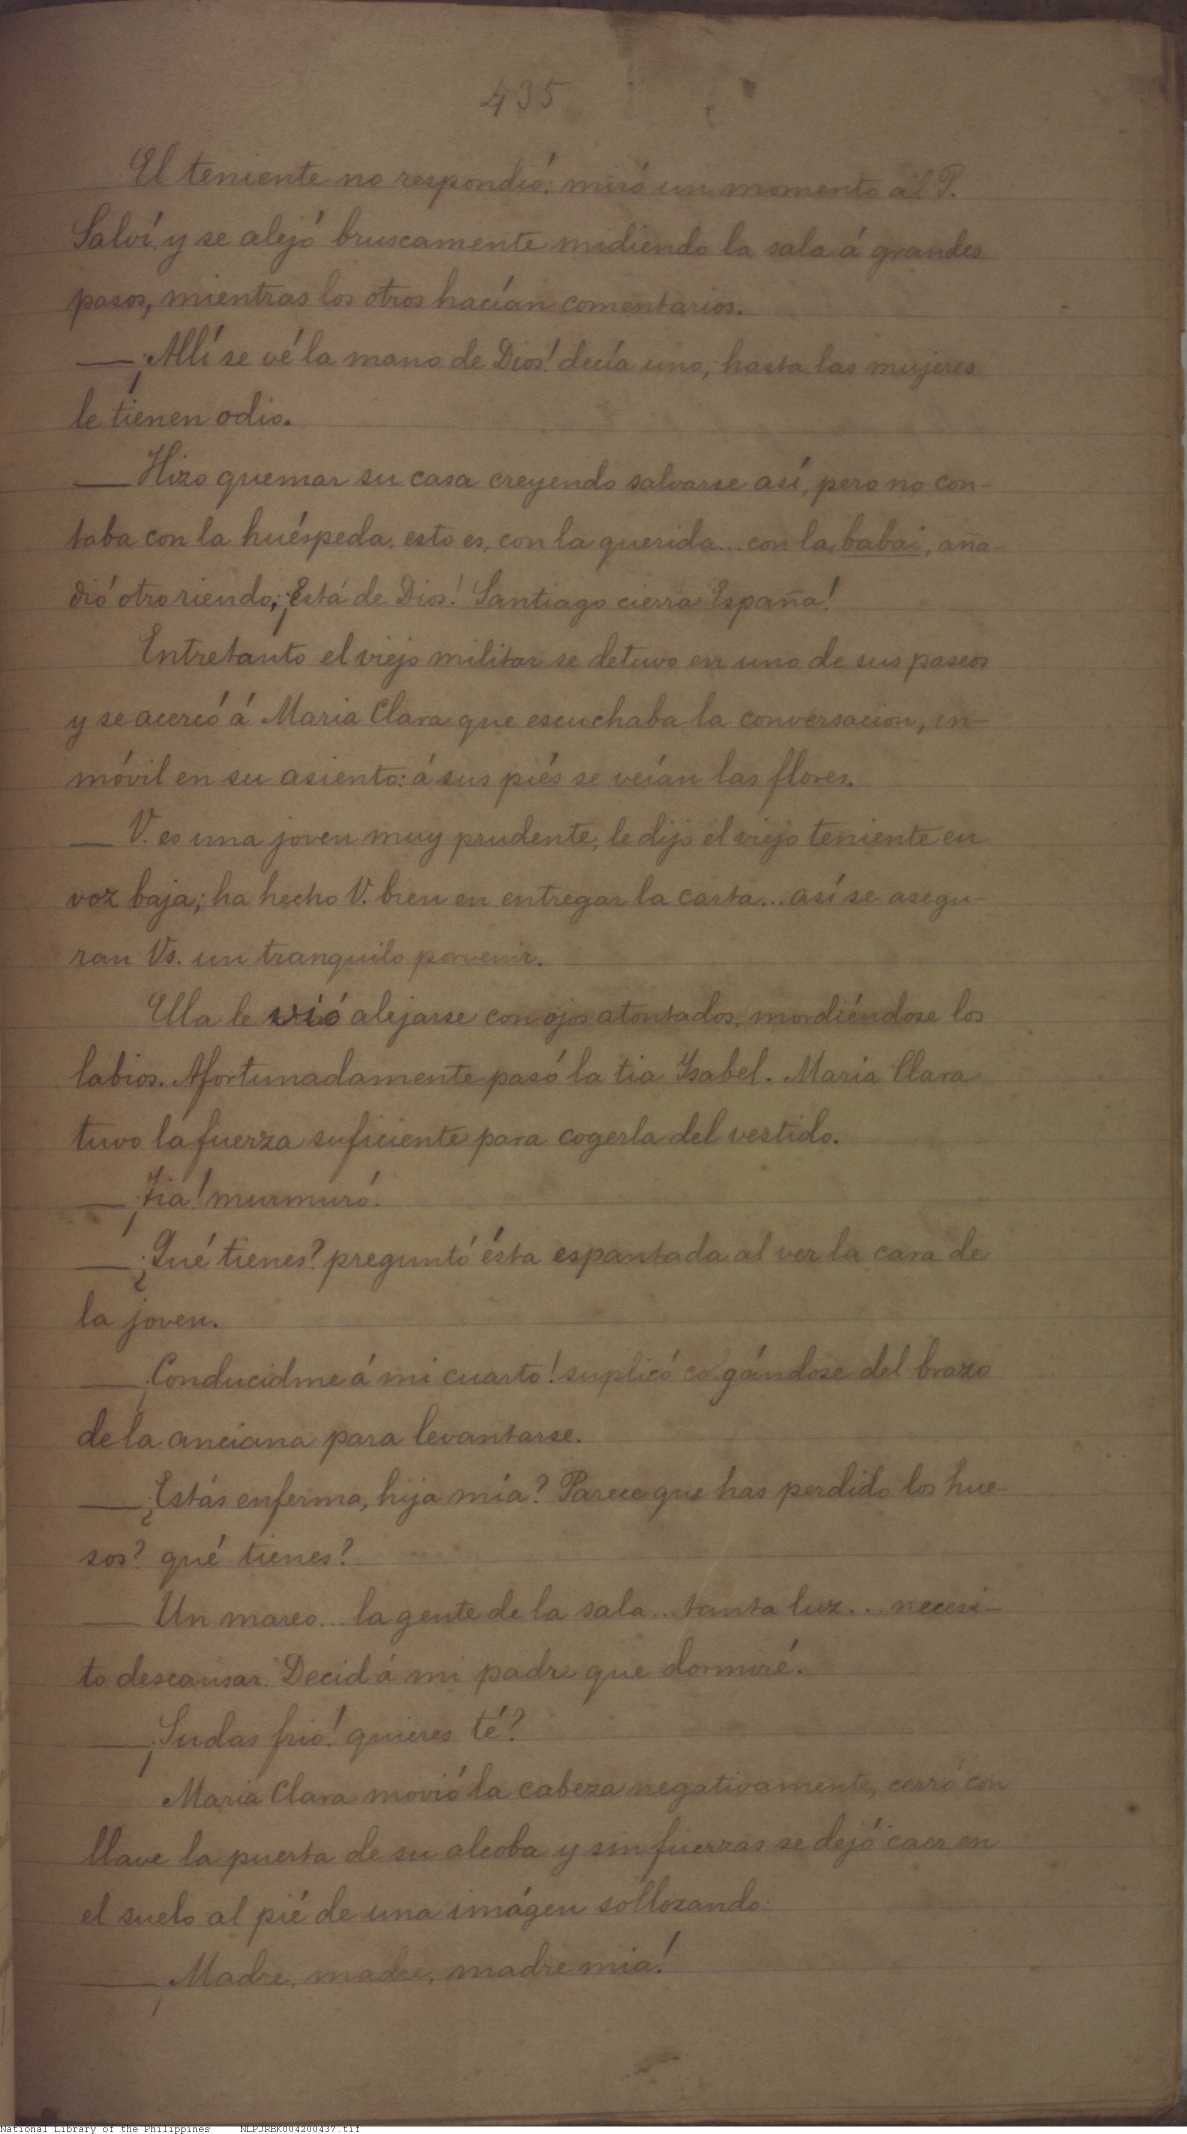 435
El teniente no respondió: miró un momento al P.
Salví, y se alejó bruscamente midiendo la sala á grandes
pasos, mientras los otros hacían comentarios.
— ¡Allí se vé la mano de Dios! decía uno; hasta las mujeres
le tienen odio.
— Hizo quemar su casa creyendo salvarse así, pero no con-
taba con la huéspeda, esto es, con la querida... con la babai, aña-
dió otro riendo; ¡Está de Dios! Santiago cierra España!
Entretanto el viejo militar se detuvo en uno de sus paseos
y se acercó á Maria Clara que escuchaba la conversacion, in-
móvil en su asiento: á sus piés se veían las flores.
— V. es una joven muy prudente, le dijo el viejo teniente en
voz baja; ha hecho V. bien en entregar la carta... así se asegu-
ran Vs. un tranquilo porvenir.
Ella le vió alejarse con ojos atontados, mordiéndose los
labios. Afortunadamente pasó la tia Ysabel. Maria Clara
tuvo la fuerza suficiente para cogerla del vestido.
— ¡Tia! murmuró.
— ¿Qué tienes? preguntó ésta espantada al ver la cara de
la joven.
— ¡Conducidme á mi cuarto! suplicó colgándose del brazo
de la anciana para levantarse.
— ¿Estás enferma, hija mía? Parece que has perdido los hue-
sos? qué tienes?
— Un mareo... la gente de la sala... tanta luz... necesi-
to descansar. Decid á mi padre que dormiré.
— ¡Sudas frio! quieres té?
Maria Clara movió la cabeza negativamente, cerró con
llave la puerta de su alcoba y sin fuerzas se dejó caer en
el suelo al pié de una imágen sollozando:
— ¡Madre, madre, madre mia!
National Library of the Philippines NLPJRBK004200437.tif